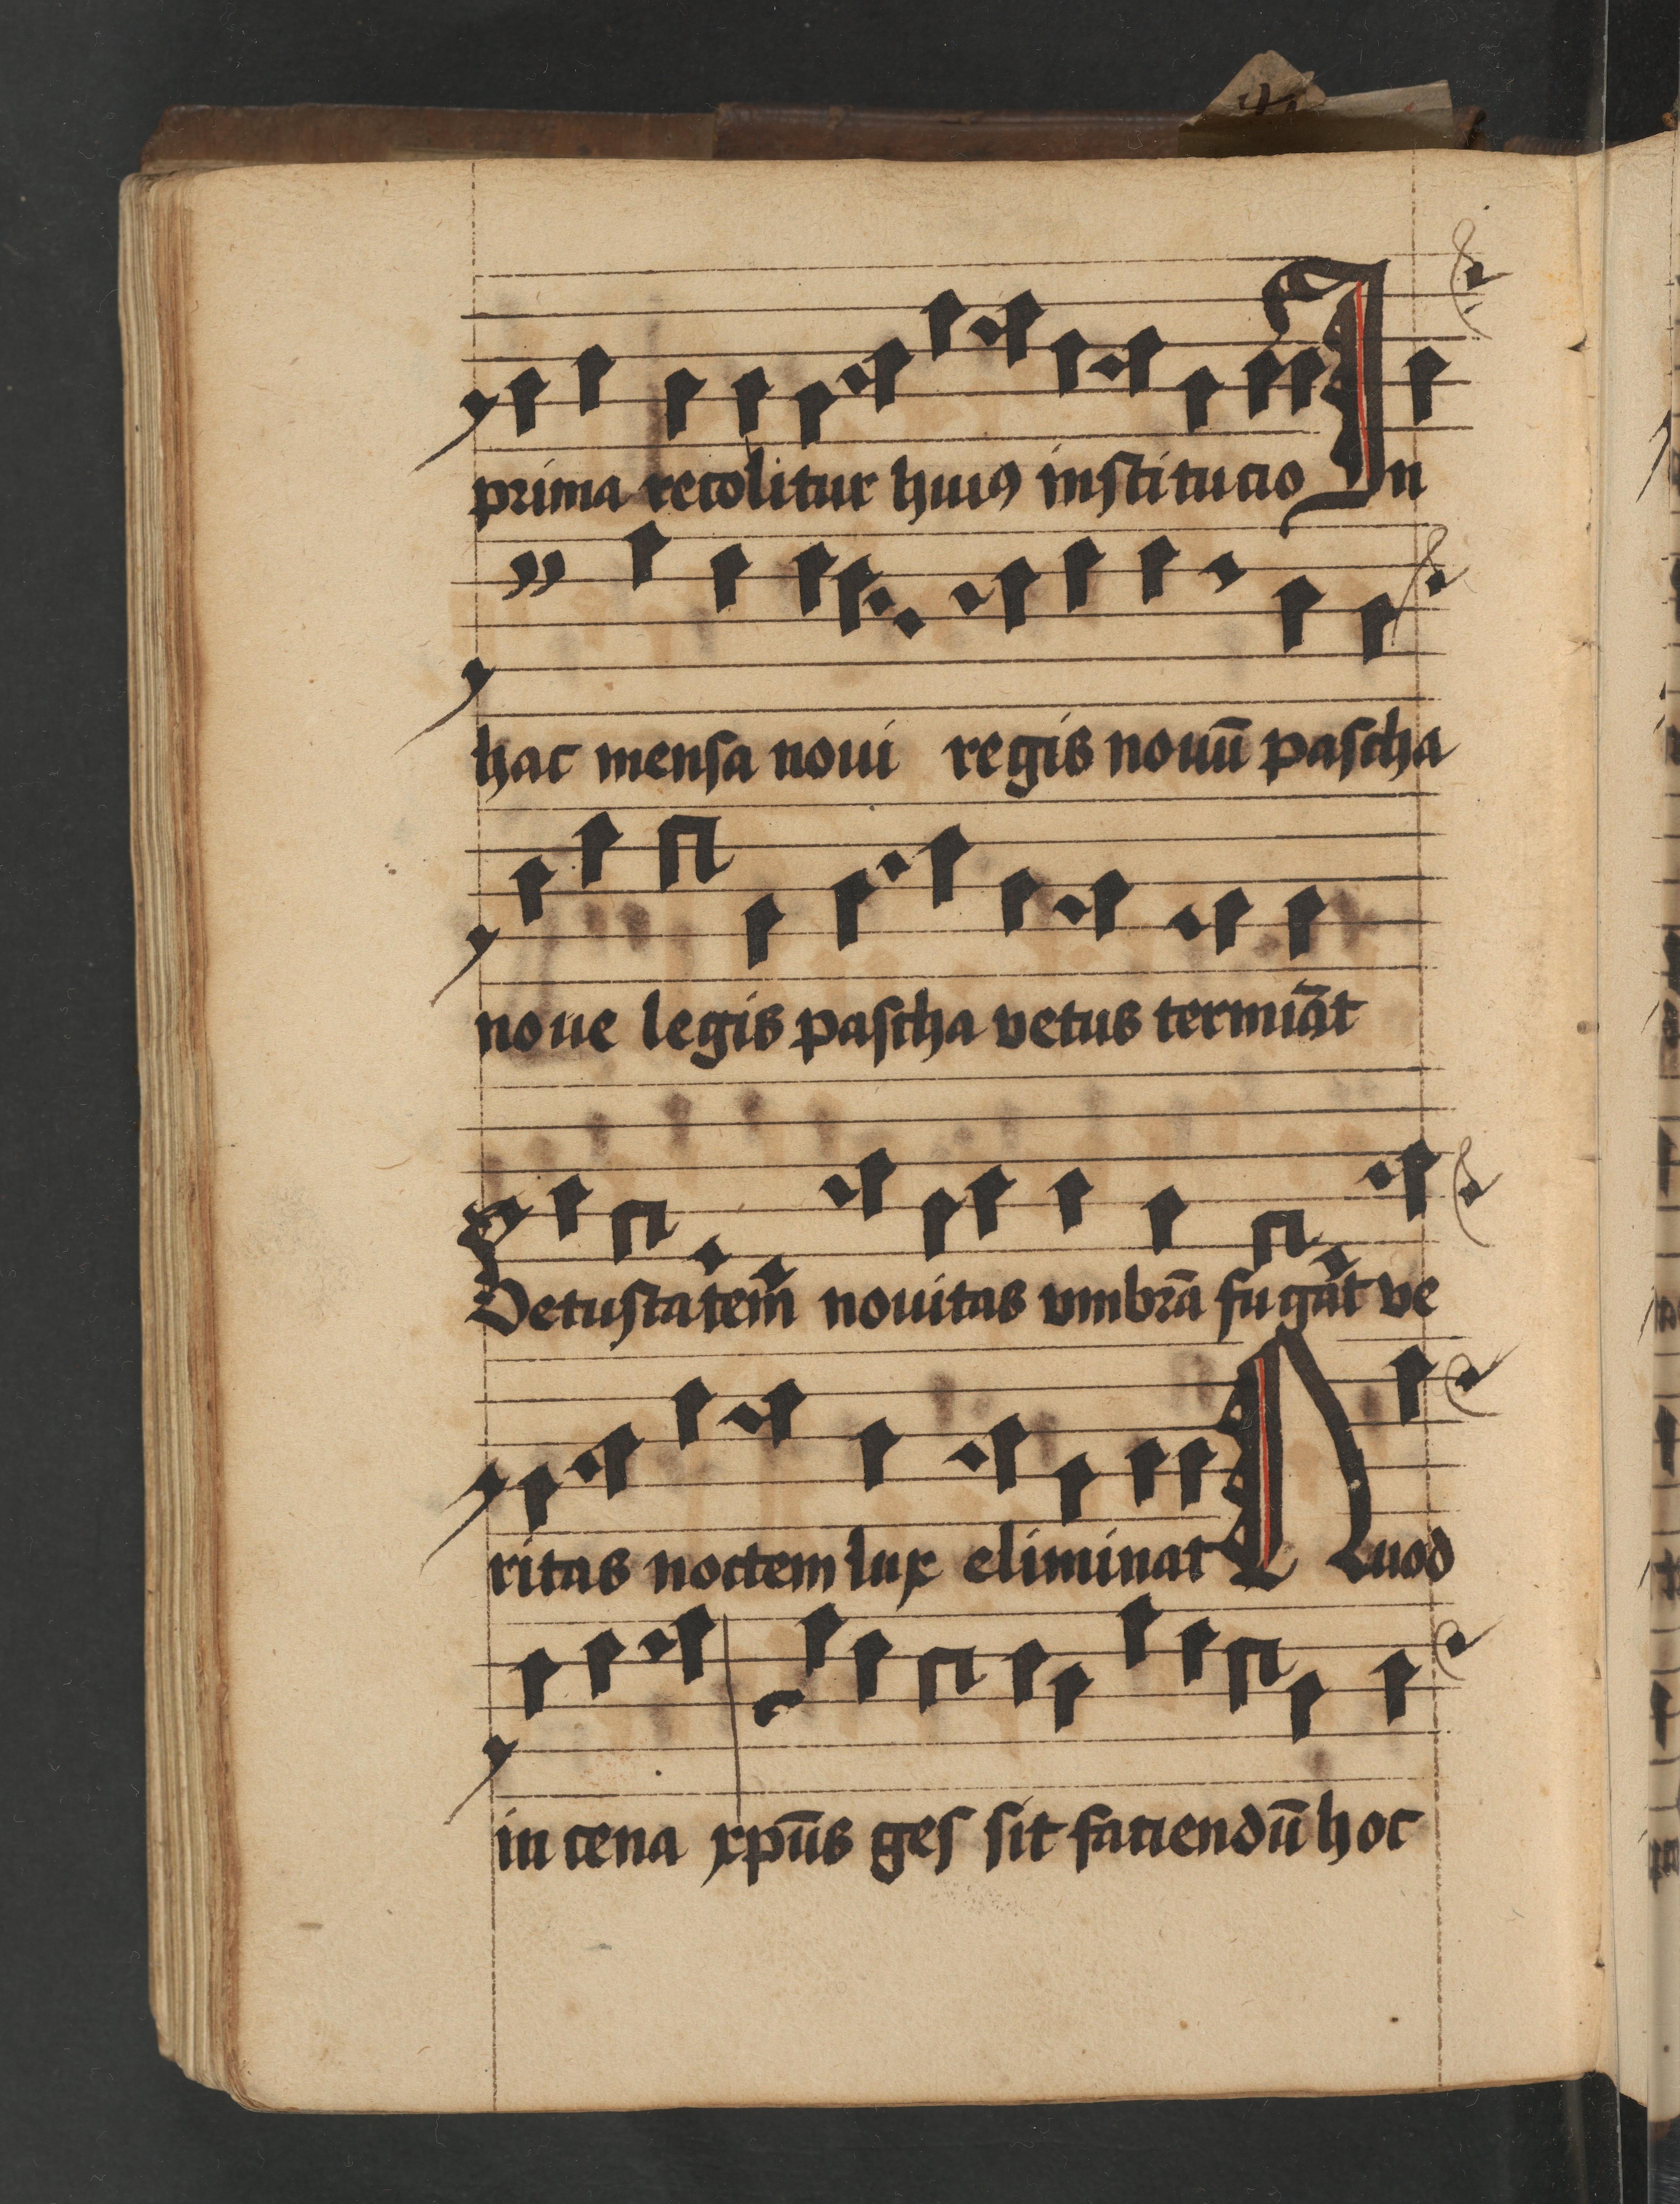 prima recolitur huiꝰ institucio In
hac mensa noui regis nouū pascha
noue legis pascha vetus termiāt
Vetustatem̄ nouitas vmbrā fugat ve
ritas noctem lux eliminat Quod
in cena xpūs ges sit faciendū hoc